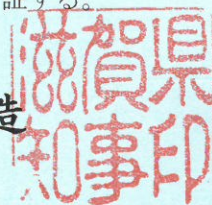 証する。
造
滋賀県
知事印